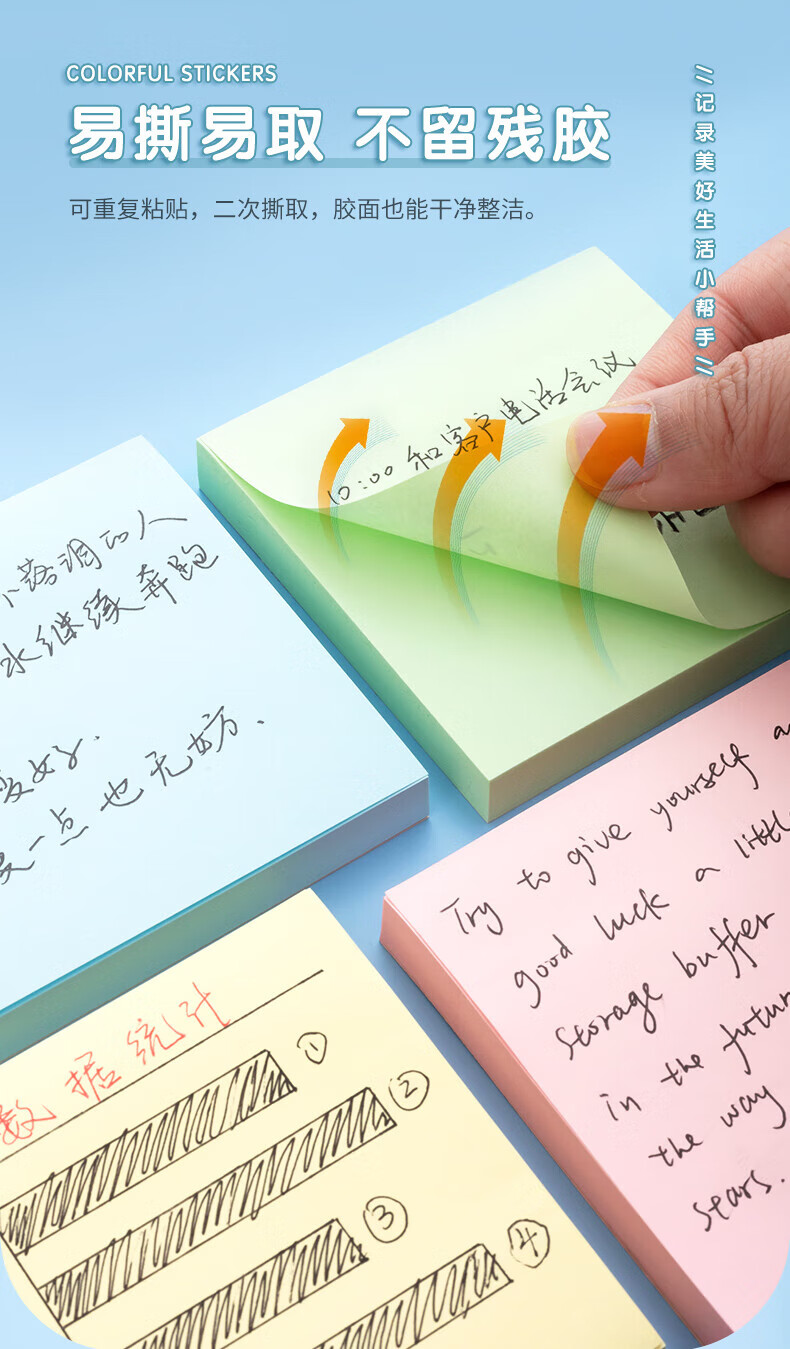 COLORFUL STICKERS
易撕易取 不留残胶
可重复粘贴，二次撕取，胶面也能干净整洁。
记录美好生活小帮手
10:00 和客户电话会议
小落调的人
水继续奔跑
变好.
一点也无妨、
Try to give yourself a
good luck a little
storage buffer
in the future
the way
stars.
数据统计
①
②
③
④